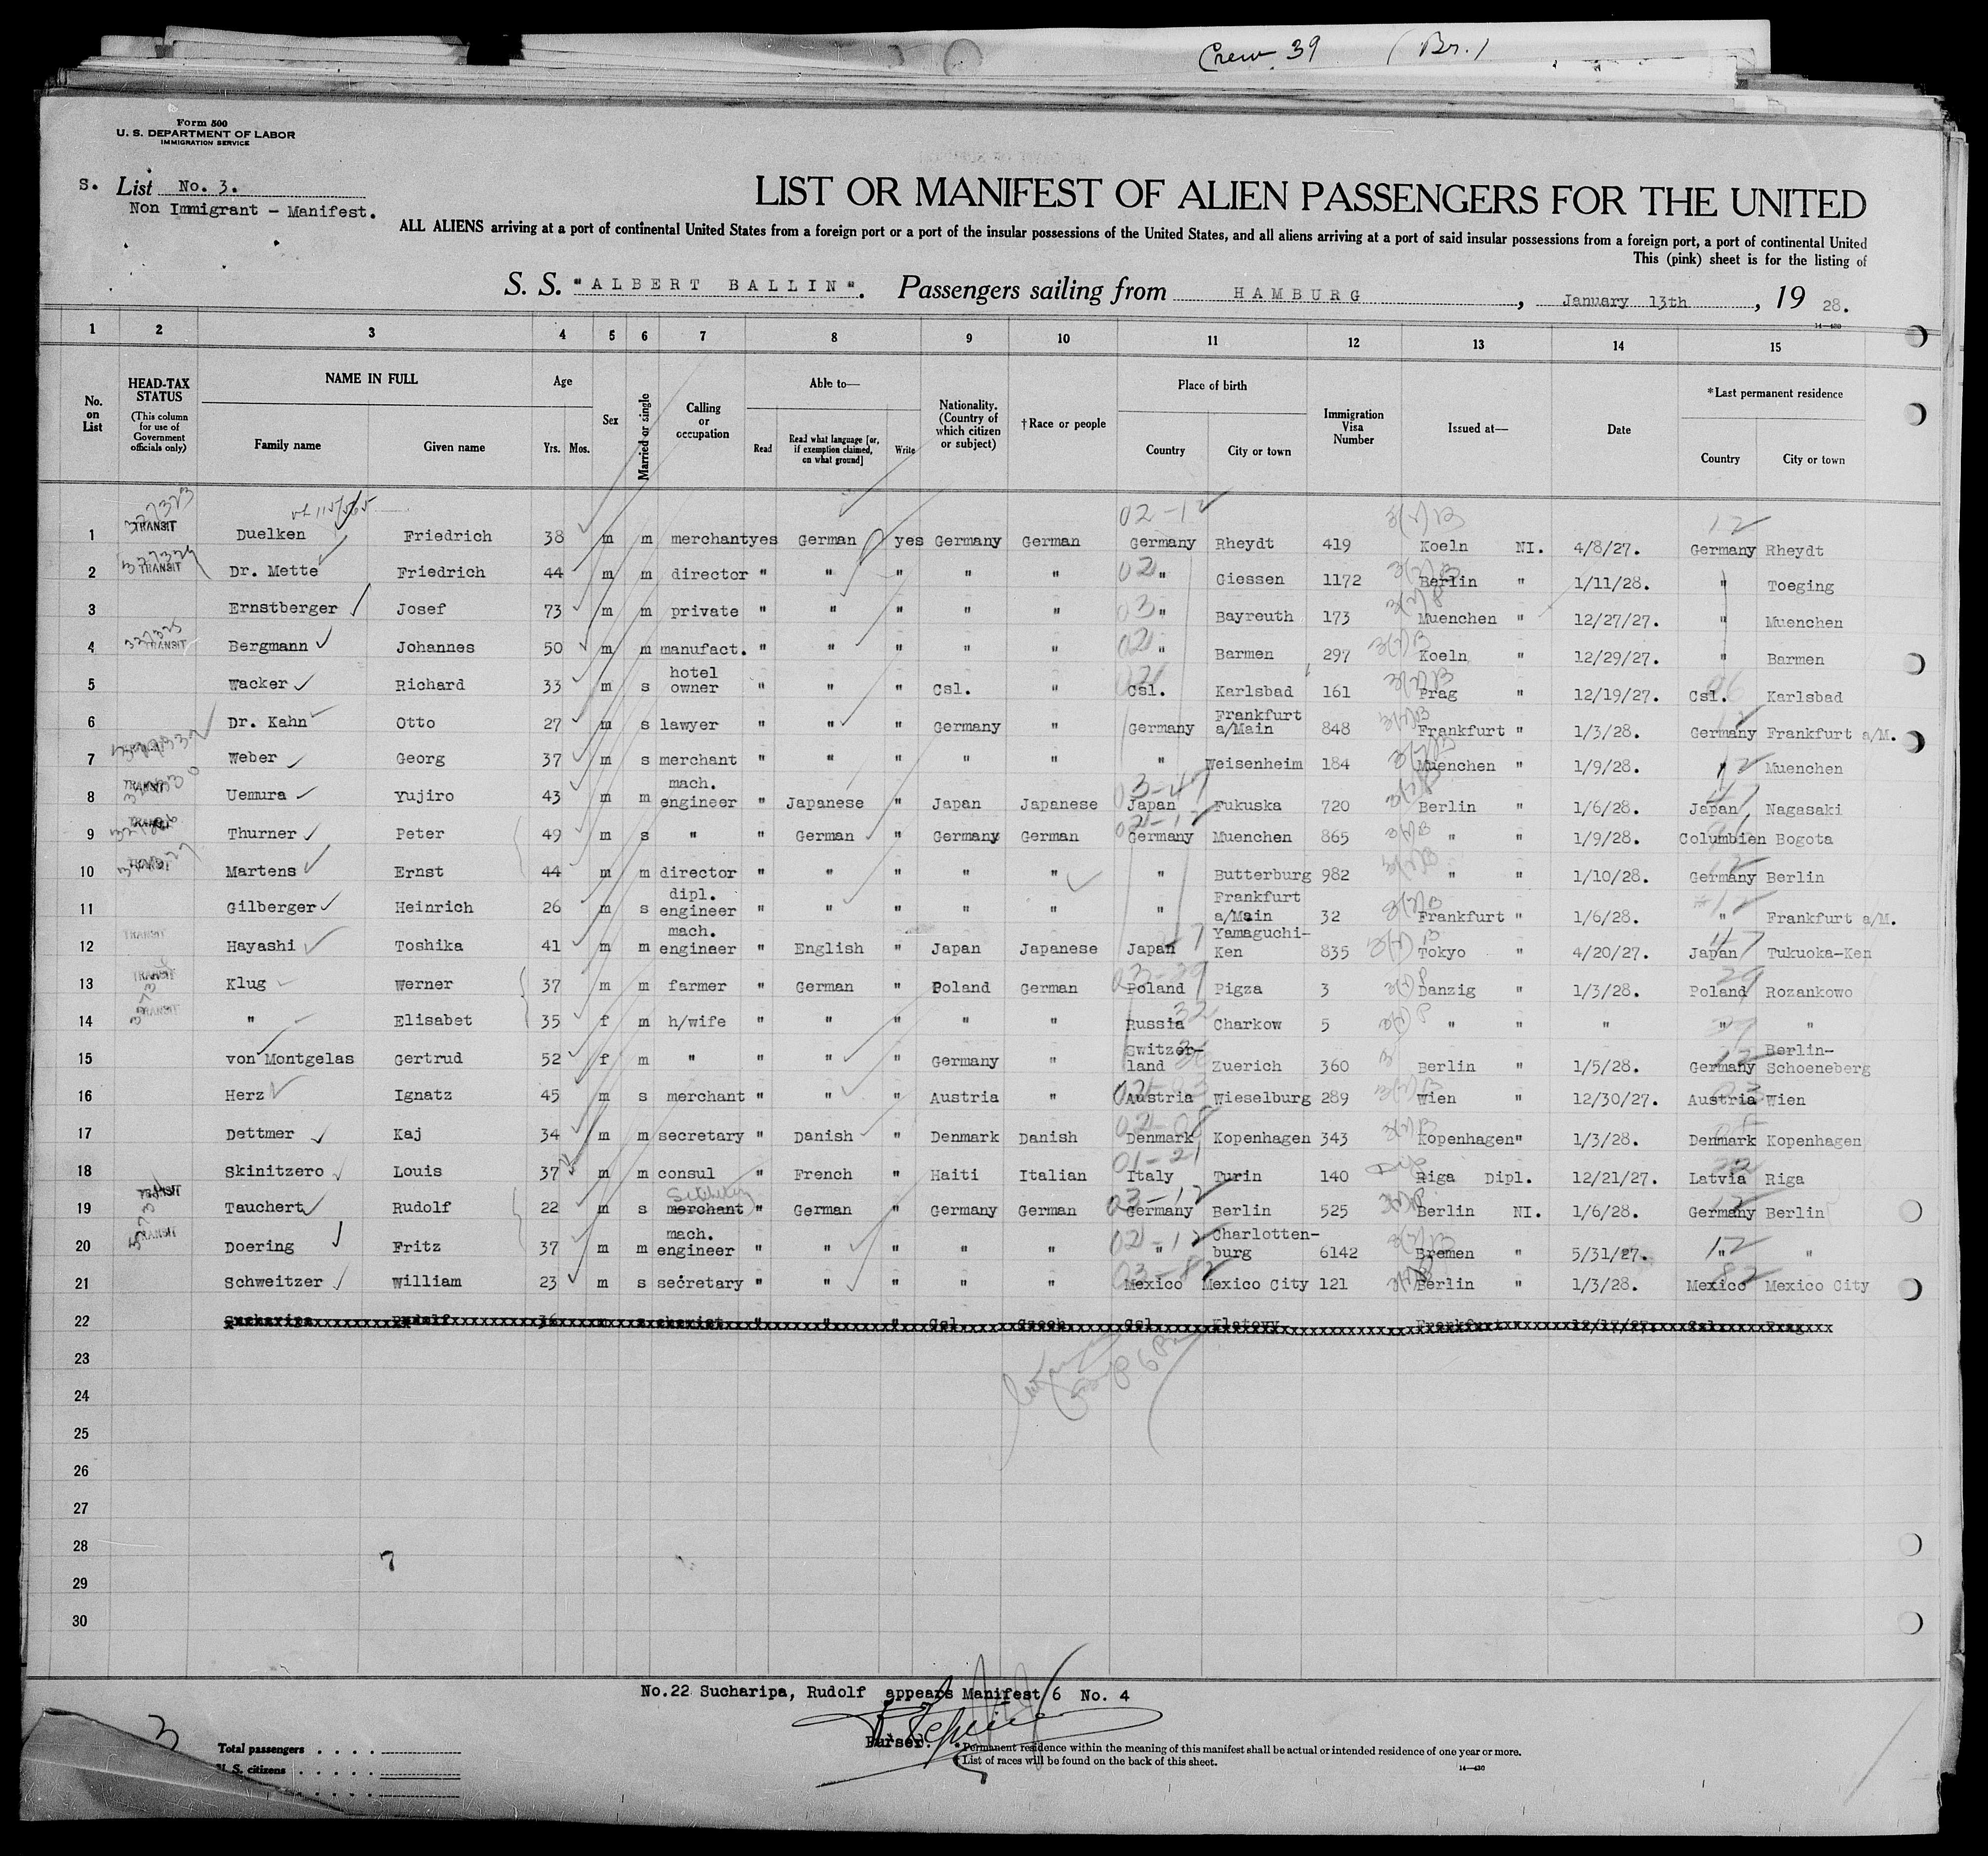 Crew 39 (Br.)
Form 500
U. S. DEPARTMENT OF LABOR
IMMIGRATION SERVICE
S. List No. 3.
Non Immigrant - Manifest.
LIST OR MANIFEST OF ALIEN PASSENGERS FOR THE UNITED
ALL ALIENS arriving at a port of continental United States from a foreign port or a port of the insular possessions of the United States, and all aliens arriving at a port of said insular possessions from a foreign port, a port of continental United
This (pink) sheet is for the listing of
S. S. "ALBERT BALLIN". Passengers sailing from HAMBURG, January 13th, 19 28.
14—430
1 2 3 4 5 6 7 8 9 10 11 12 13 14 15
No. on List
HEAD-TAX STATUS (This column for use of Government officials only)
NAME IN FULL
Family name Given name
Age
Yrs. Mos.
Sex
Married or single
Calling or occupation
Able to—
Read Read what language [or, if exemption claimed, on what ground] Write
Nationality. (Country of which citizen or subject)
†Race or people
Place of birth
Country City or town
Immigration Visa Number
Issued at—
Date
*Last permanent residence
Country City or town
02-12 3(2)B 12
1 TRANSIT Duelken Friedrich 38 m m merchant yes German yes Germany German Germany Rheydt 419 Koeln NI. 4/8/27. Germany Rheydt
2 TRANSIT Dr. Mette Friedrich 44 m m director " " " " " " Giessen 1172 Berlin " 1/11/28. " Toeging
3 Ernstberger Josef 73 m m private " " " " " " Bayreuth 173 Muenchen " 12/27/27. " Muenchen
4 TRANSIT Bergmann Johannes 50 m m manufact. " " " " " " Barmen 297 Koeln " 12/29/27. " Barmen
5 Wacker Richard 33 m s hotel owner " " " Csl. " Csl. Karlsbad 161 Prag " 12/19/27. Csl. Karlsbad
6 Dr. Kahn Otto 27 m s lawyer " " " Germany " Germany Frankfurt a/Main 848 Frankfurt " 1/3/28. Germany Frankfurt a/M.
7 Weber Georg 37 m s merchant " " " " " " Weisenheim 184 Muenchen " 1/9/28. " Muenchen
8 TRANSIT Uemura Yujiro 43 m m mach. engineer " Japanese " Japan Japanese Japan Fukuska 720 Berlin " 1/6/28. Japan Nagasaki
9 Thurner Peter 49 m s " " German " Germany German Germany Muenchen 865 " " 1/9/28. Columbien Bogota
10 Martens Ernst 44 m m director " " " " " " Butterburg 982 " " 1/10/28. Germany Berlin
11 Gilberger Heinrich 26 m s dipl. engineer " " " " " " Frankfurt a/Main 32 Frankfurt " 1/6/28. " Frankfurt a/M.
12 TRANSIT Hayashi Toshika 41 m m mach. engineer " English " Japan Japanese Japan Yamaguchi-Ken 835 Tokyo " 4/20/27. Japan Fukuoka-Ken
13 TRANSIT Klug Werner 37 m m farmer " German " Poland German Poland Pigza 3 Danzig " 1/3/28. Poland Rozankowo
14 TRANSIT " Elisabet 35 f m h/wife " " " " " Russia Charkow 5 " " " " "
15 von Montgelas Gertrud 52 f m " " " " Germany " Switzer-land Zuerich 360 Berlin " 1/5/28. Germany Berlin-Schoeneberg
16 Herz Ignatz 45 m s merchant " " " Austria " Austria Wieselburg 289 Wien " 12/30/27. Austria Wien
17 Dettmer Kaj 34 m m secretary " Danish " Denmark Danish Denmark Kopenhagen 343 Kopenhagen " 1/3/28. Denmark Kopenhagen
18 Skinitzero Louis 37 m m consul " French " Haiti Italian Italy Turin 140 Riga Dipl. 12/21/27. Latvia Riga
19 Tauchert Rudolf 22 m s merchant " German " Germany German Germany Berlin 525 Berlin NI. 1/6/28. Germany Berlin
20 TRANSIT Doering Fritz 37 m m mach. engineer " " " " " " Charlotten-burg 6142 Bremen " 5/31/27. " "
21 Schweitzer William 23 m s secretary " " " " " Mexico Mexico City 121 Berlin " 1/3/28. Mexico Mexico City
22 Sucharipa Rudolf 36 m s " " " Csl. Czech Csl. Klatovy Frankfurt 12/17/27. Csl. Prag
23
24
25
26
27
28
7
29
30
No.22 Sucharipa, Rudolf appears Manifest 6 No. 4
Purser.
3
Total passengers
U. S. citizens
*Permanent residence within the meaning of this manifest shall be actual or intended residence of one year or more.
†List of races will be found on the back of this sheet.
14—430